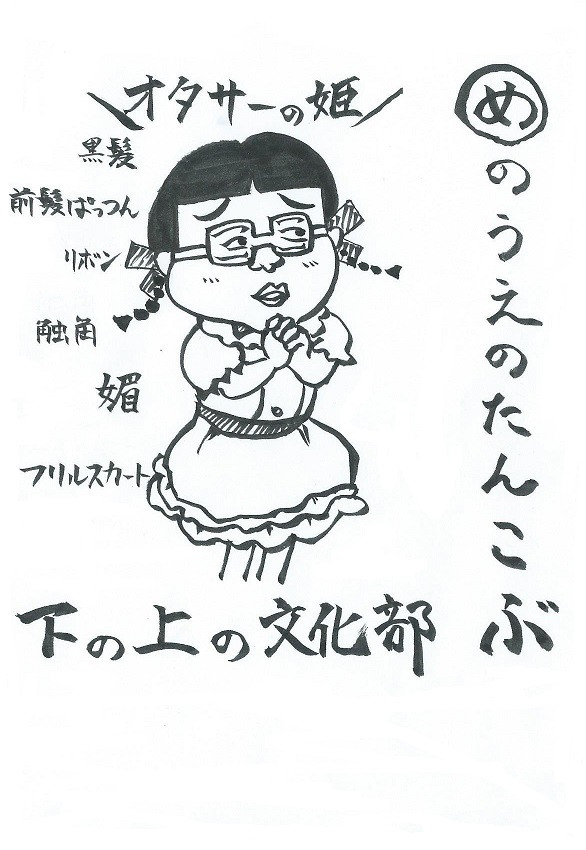 めのうえのたんこぶ
オタサーの姫
黒髪
前髪ぱっつん
リボン
触角
媚
フリルスカート
下の上の文化部